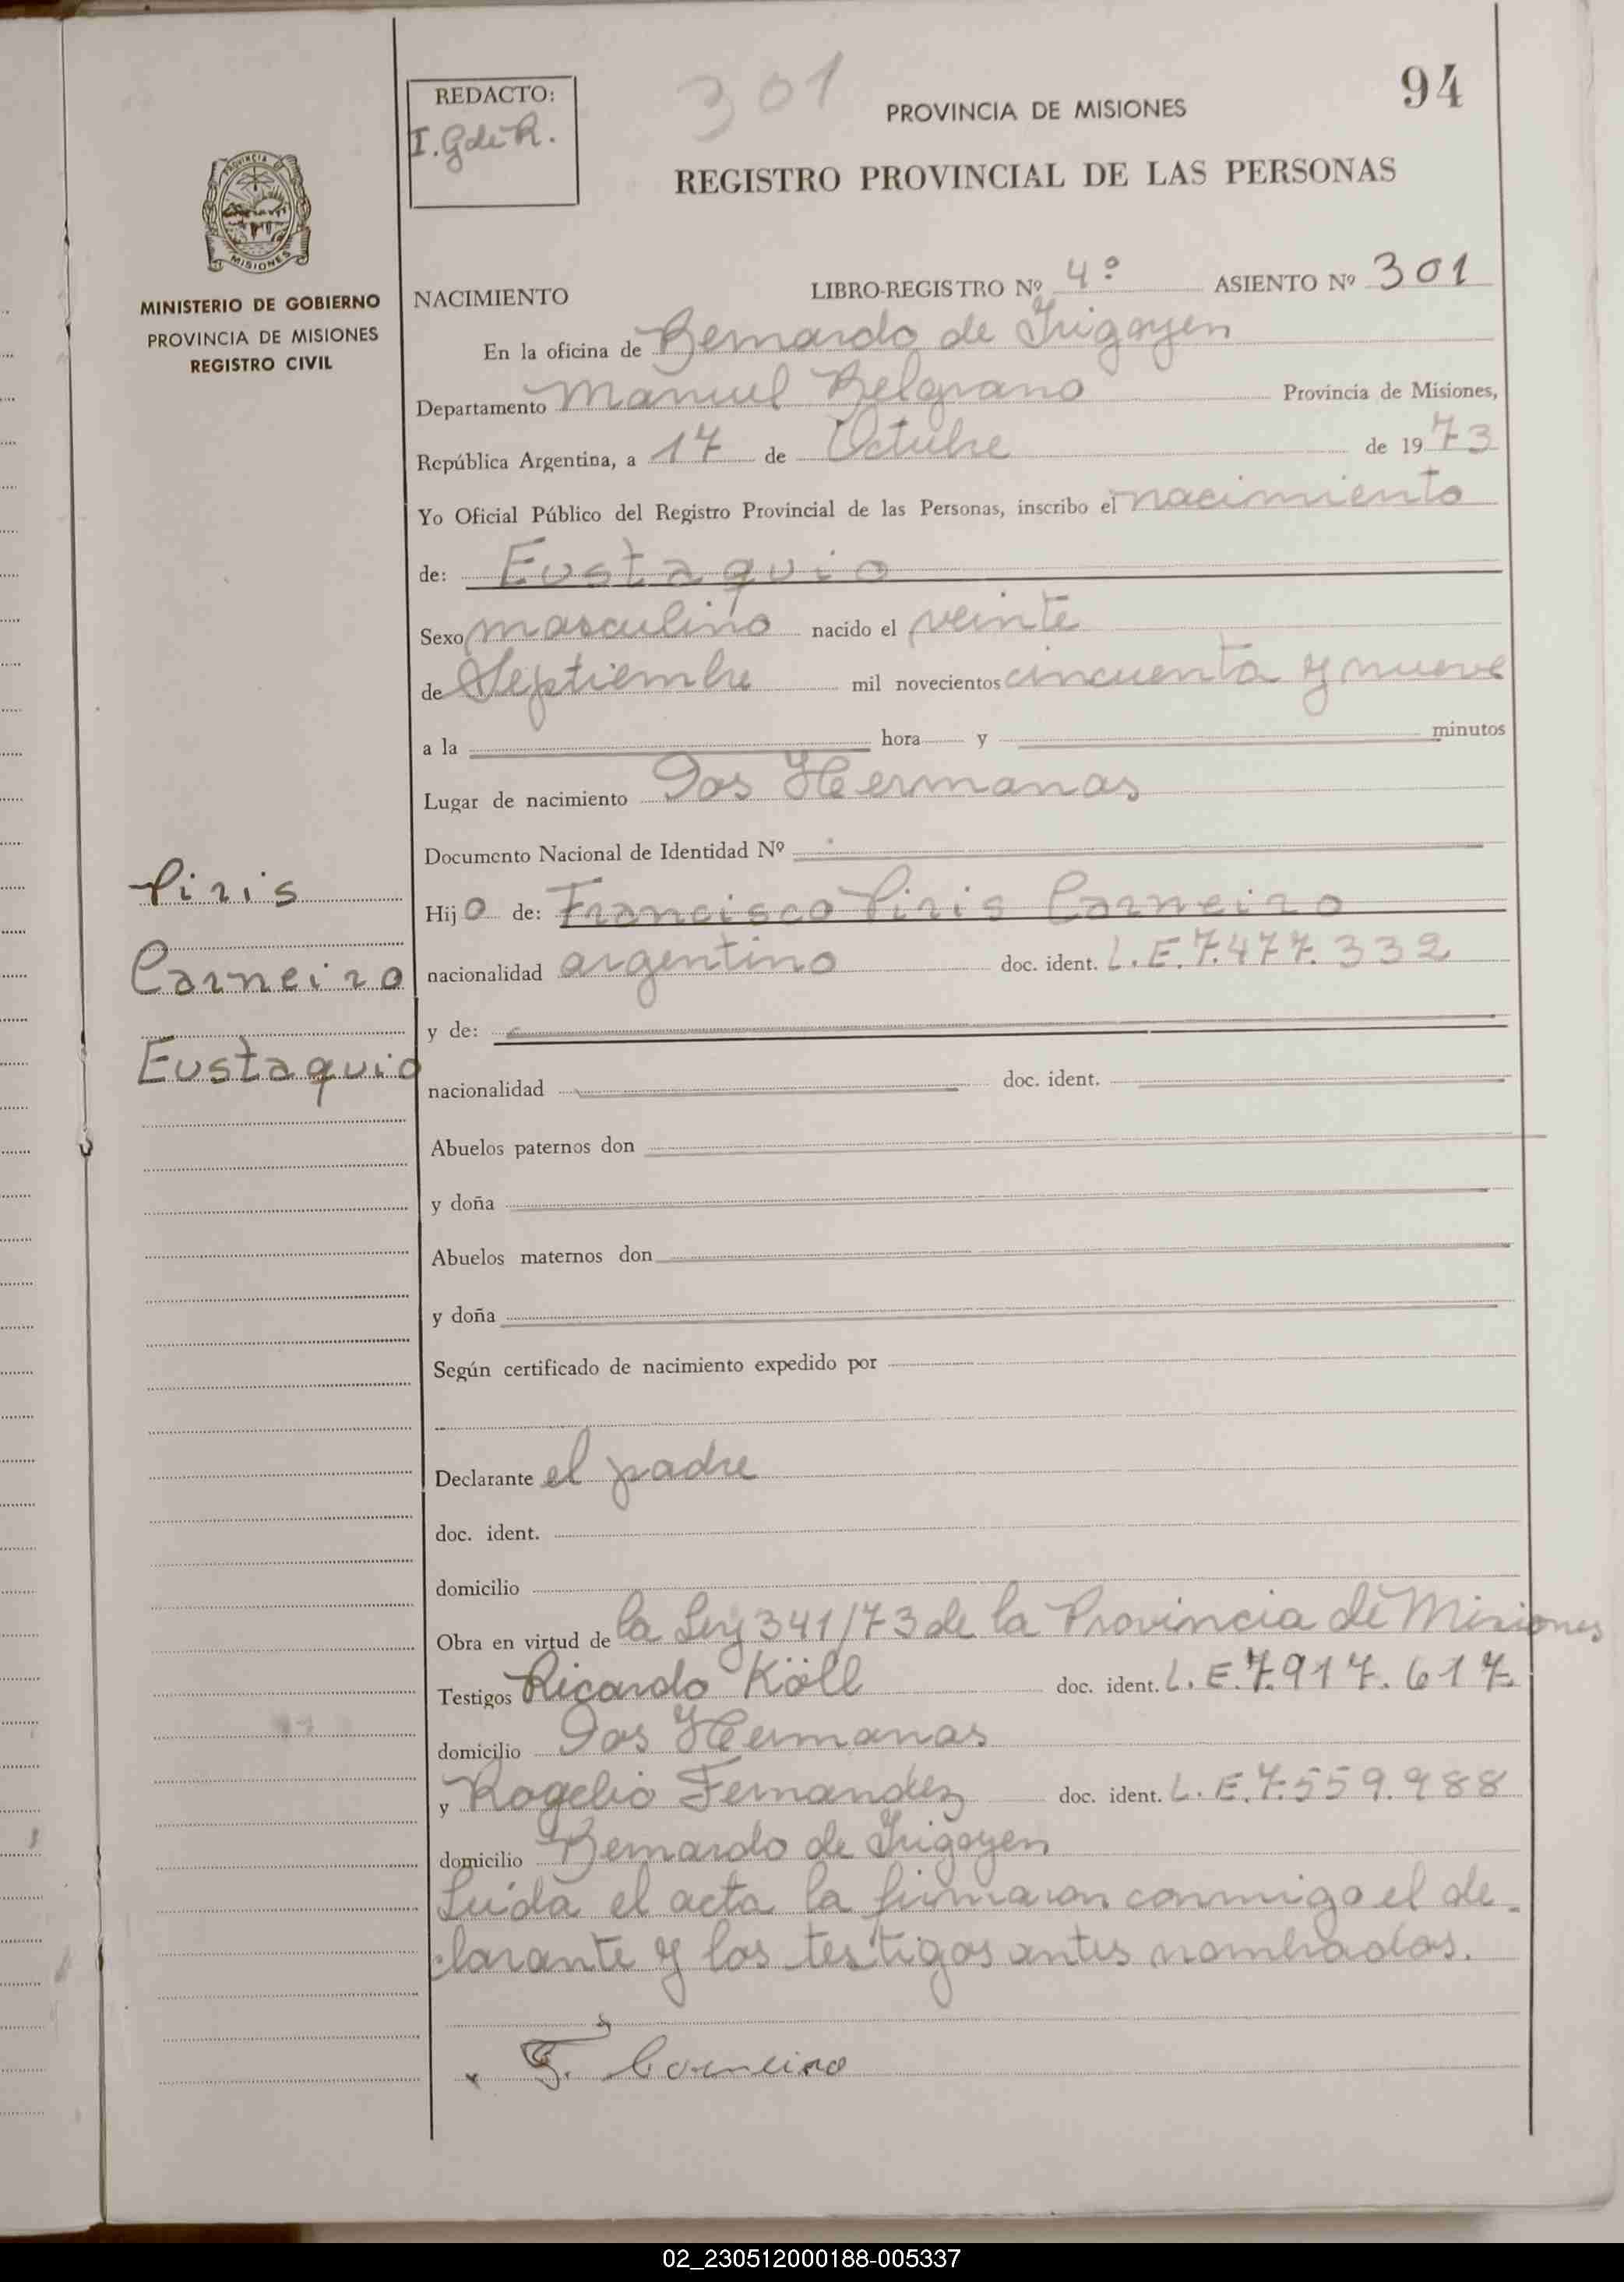 REDACTO:
I. G de R.
301
94
PROVINCIA DE MISIONES
REGISTRO PROVINCIAL DE LAS PERSONAS
PROVINCIA DE
MISIONES
MINISTERIO DE GOBIERNO
PROVINCIA DE MISIONES
REGISTRO CIVIL
NACIMIENTO LIBRO-REGISTRO Nº 4º ASIENTO Nº 301
En la oficina de Bernardo de Irigoyen
Departamento Manuel Belgrano Provincia de Misiones,
República Argentina, a 17 de Octubre de 1973
Yo Oficial Público del Registro Provincial de las Personas, inscribo el nacimiento
de: Eustaquio
Sexo masculino nacido el veinte
de Septiembre mil novecientos cincuenta y nueve
a la hora y minutos
Lugar de nacimiento Dos Hermanas
Documento Nacional de Identidad Nº
Piris
Carneiro
Eustaquio
Hijo de: Francisco Piris Carneiro
nacionalidad argentino doc. ident. L.E.7.477.332
y de:
nacionalidad doc. ident.
Abuelos paternos don
y doña
Abuelos maternos don
y doña
Según certificado de nacimiento expedido por
Declarante el padre
doc. ident.
domicilio
Obra en virtud de la Ley 341/73 de la Provincia de Misiones
Testigos Ricardo Köll doc. ident. L.E.7.917.617
domicilio Dos Hermanas
y Rogelio Fernandez doc. ident. L.E.7.559.988
domicilio Bernardo de Irigoyen
Leída el acta la firmaron conmigo el de-
clarante y los testigos antes nombrados.
F. Carneiro
02_230512000188-005337